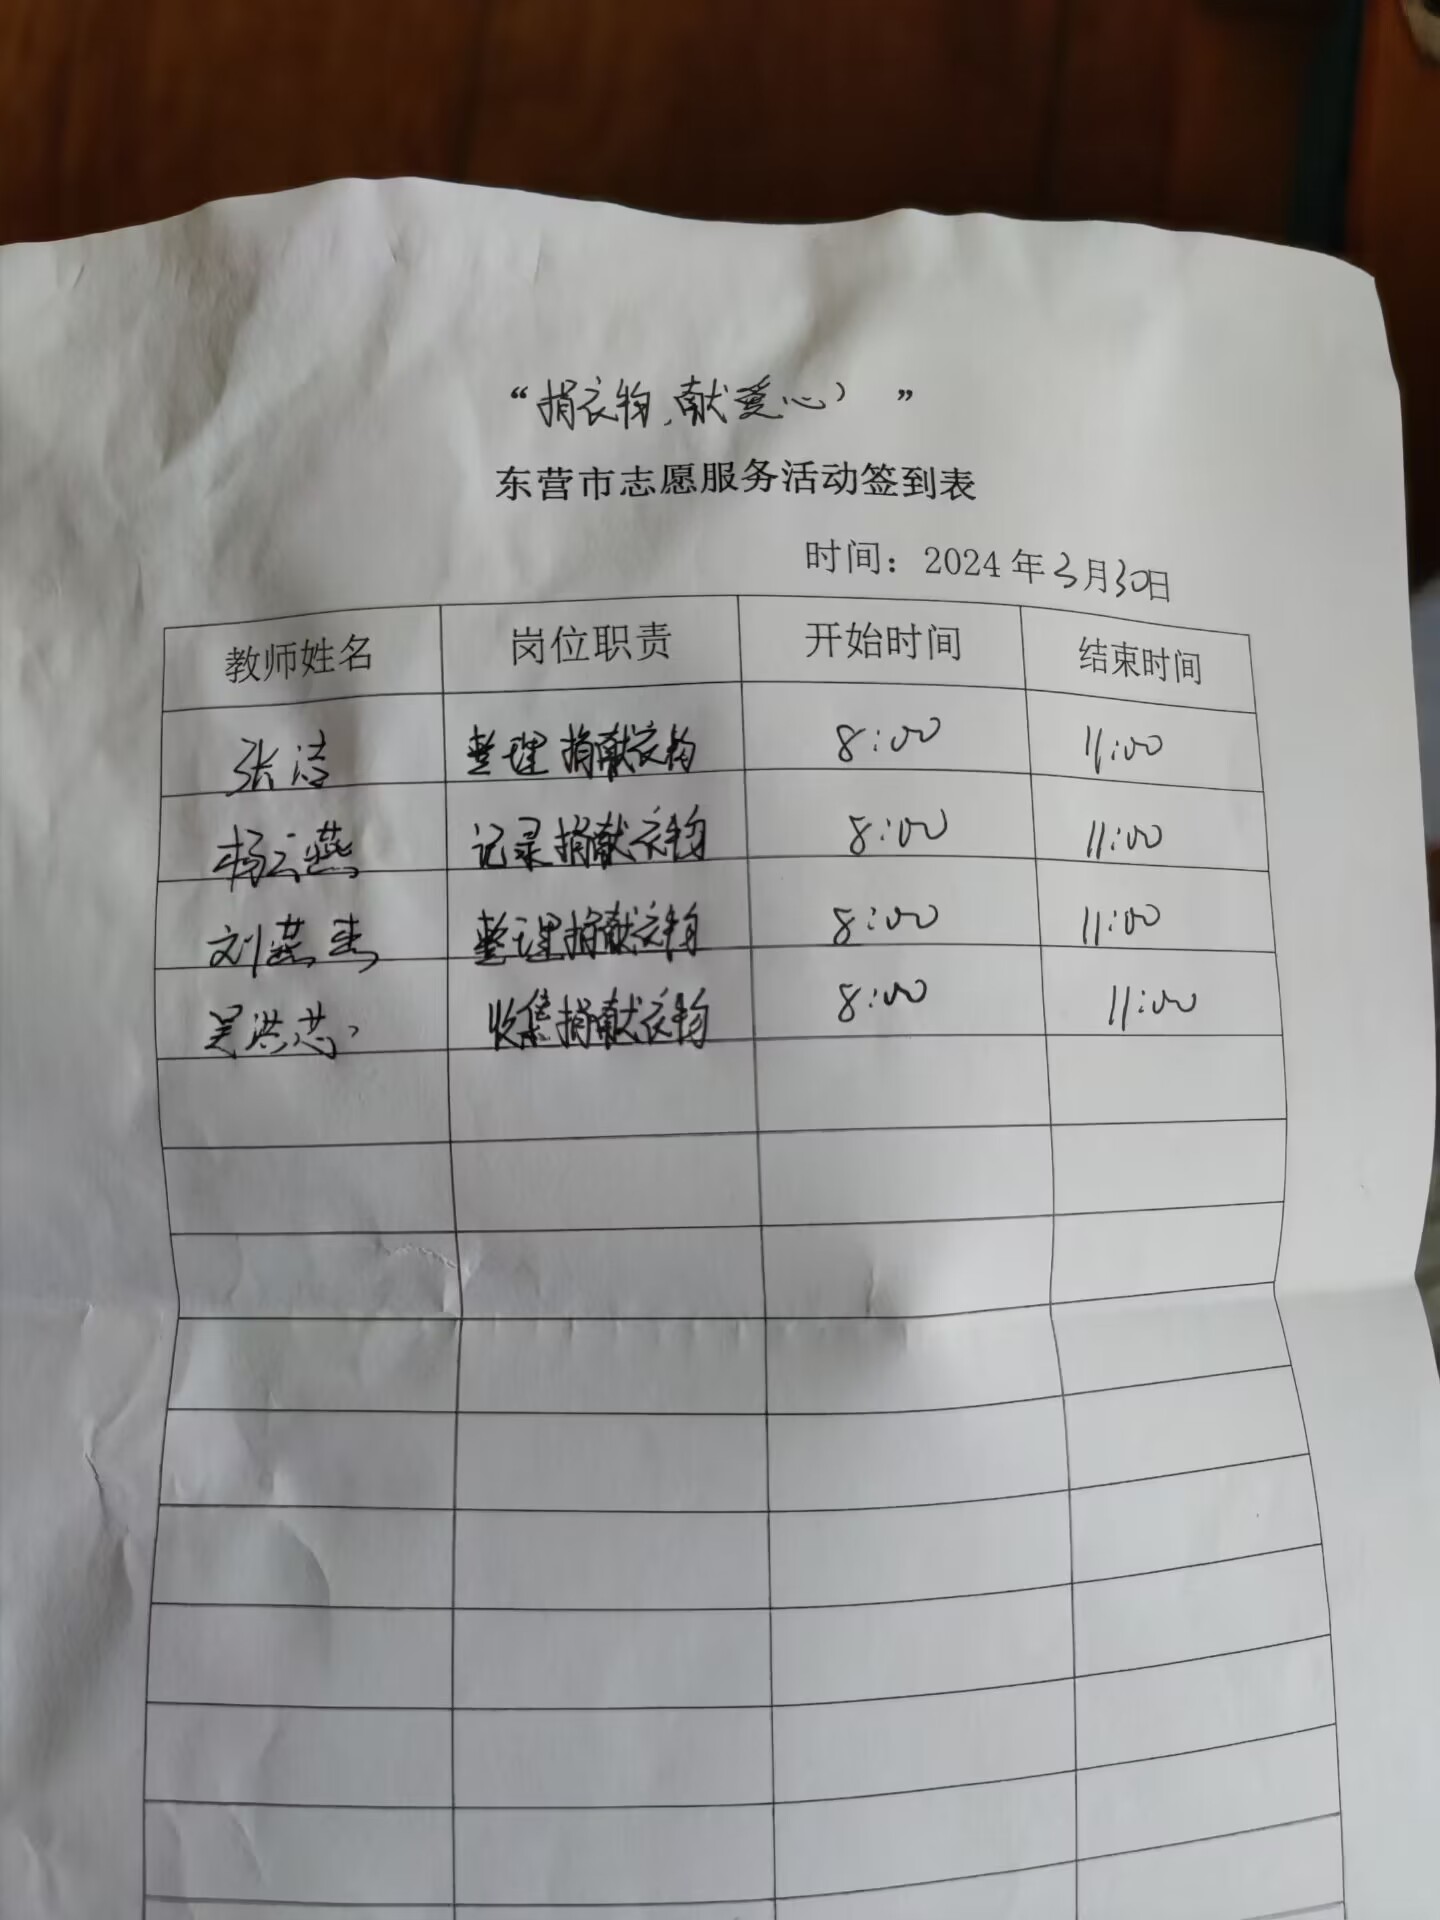 “捐衣物，献爱心”
东营市志愿服务活动签到表
时间：2024年3月30日
教师姓名 岗位职责 开始时间 结束时间
张洁 整理捐献衣物 8:00 11:00
杨云燕 记录捐献衣物 8:00 11:00
刘燕 整理捐献衣物 8:00 11:00
吴洪芯 收集捐献衣物 8:00 11:00